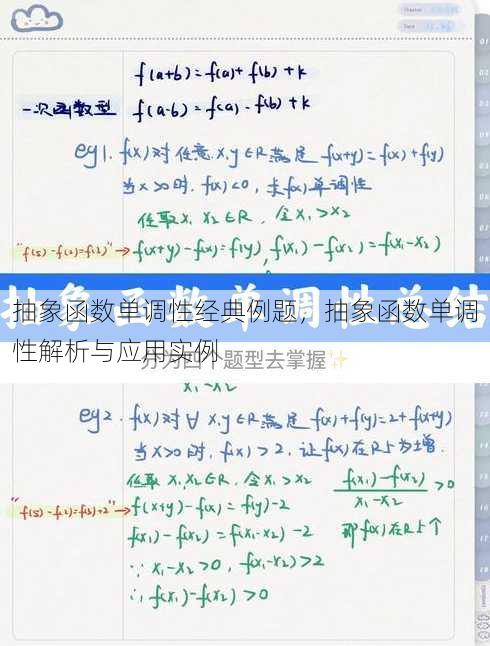 f(a+b)=f(a)+f(b)+k
一次函数型 f(a-b)=f(a)-f(b)+k
eg1. f(x)对任意x.y∈R满足f(x+y)=f(x)+f(y)
当x>0时.f(x)<0,求f(x)单调性
任取x₁ x₂∈R,令x₁>x₂
"f(5)-f(2)=f(3)"→f(x+y)-f(x)=f(y),f(x₁)-f(x₂)=f(x₁-x₂)
抽象函数单调性总结
抽象函数单调性经典例题,抽象函数单调
性解析与应用实例
分为四个题型去掌握✨
x₁-x₂
eg2.f(x)对∀x.y∈R满足f(x)+f(y)=2+f(x+y)
当x>0时,f(x)>2,证f(x)在R上为增.
任取x₁,x₂∈R,令x₁>x₂
f(x₁)-f(x₂)/x₁-x₂>0
"f(5)-f(2)=f(3)+2"→f(x+y)-f(x)=f(y)-2
f(x₁)-f(x₂)=f(x₁-x₂)-2
那f(x)在R上个
∵x₁-x₂>0,f(x₁-x₂)>2
∴f(x₁)-f(x₂)>0